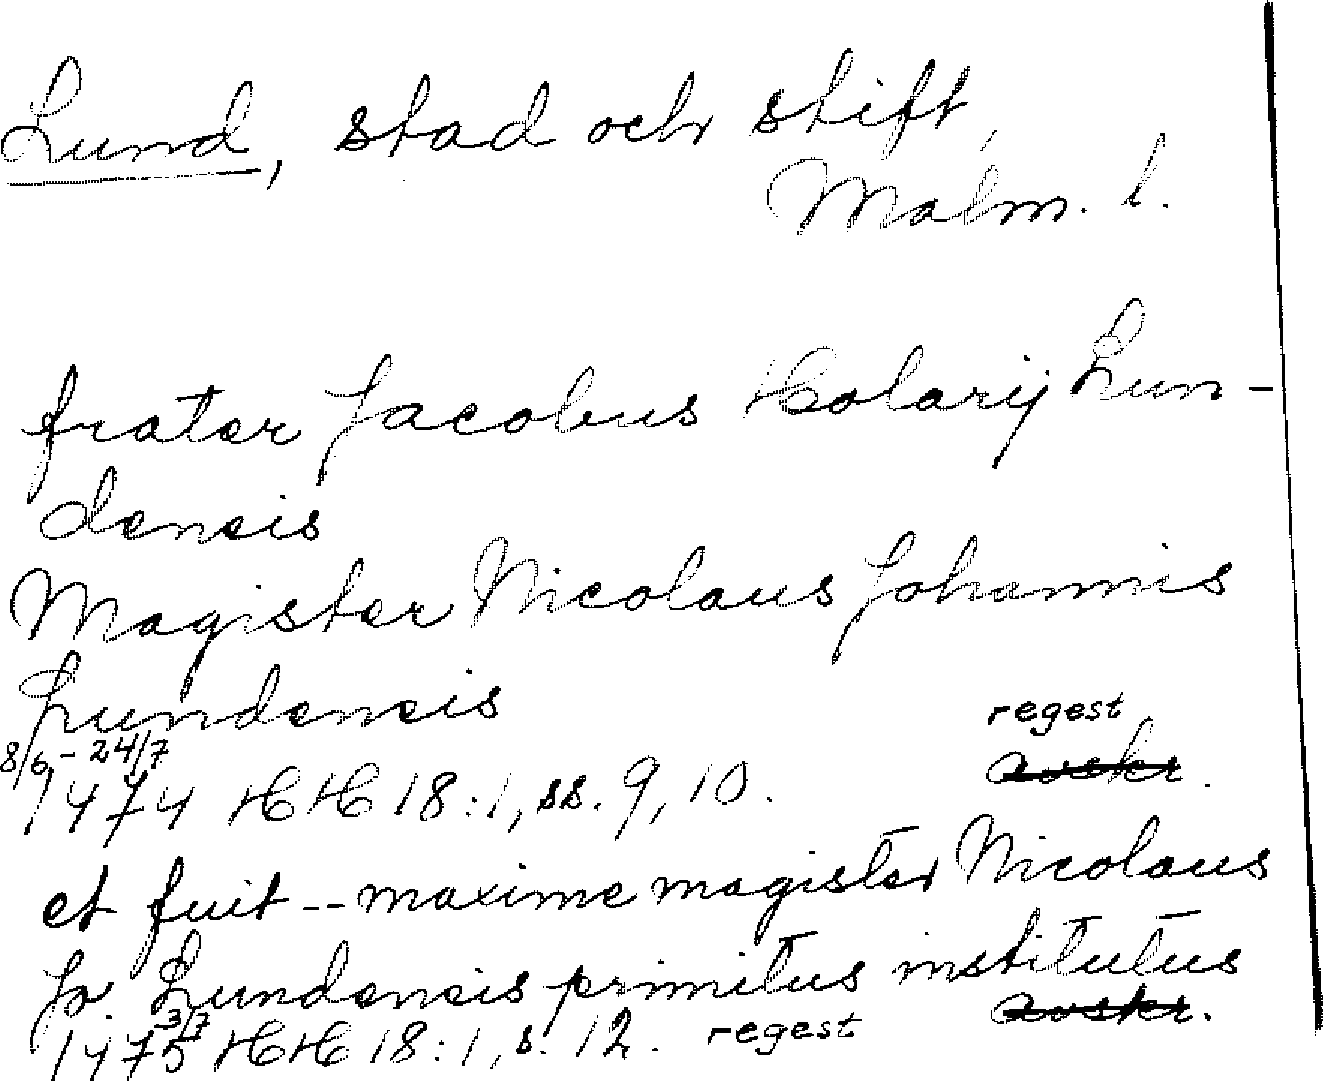 Lund, stad och stift,
Malm. l.
frater Jacobus Holarij Lun-
densis
Magister Nicolaus Johannis
Lundensis
regest
8/6 - 24/7
1474 HH 18:1, ss. 9, 10. avskr.
et fuit -- maxime magister Nicolaus
Jo. Lundensis primitus institutus
3/7
1475 HH 18:1, s. 12. regest avskr.